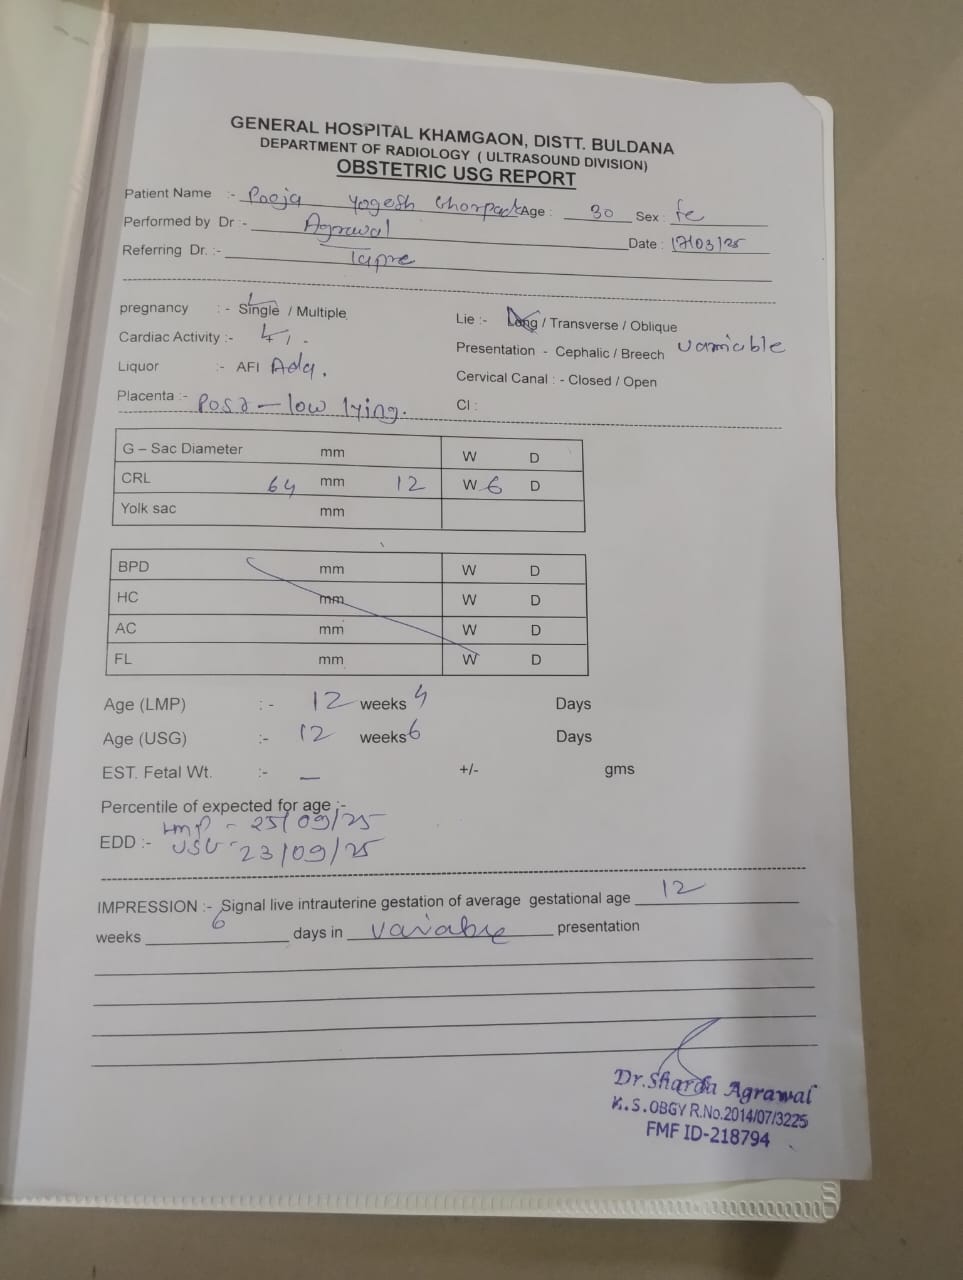 GENERAL HOSPITAL KHAMGAON, DISTT. BULDANA
DEPARTMENT OF RADIOLOGY ( ULTRASOUND DIVISION)
OBSTETRIC USG REPORT
Patient Name :- Pooja Yogesh Ghorpade Age : 30 Sex : fe
Performed by Dr :- Agrawal Date : 17/03/25
Referring Dr. :- Tapre
pregnancy : - Single / Multiple Lie :- Long / Transverse / Oblique
Cardiac Activity :- Presentation - Cephalic / Breech variable
Liquor :- AFI Adq. Cervical Canal : - Closed / Open
Placenta :- Post - low lying. CI :
G – Sac Diameter mm W D
CRL 64 mm 12 W 6 D
Yolk sac mm
BPD mm W D
HC mm W D
AC mm W D
FL mm W D
Age (LMP) : - 12 weeks 4 Days
Age (USG) :- 12 weeks 6 Days
EST. Fetal Wt. :- — +/- gms
Percentile of expected for age :-
LMP - 25/09/25
EDD :- USG - 23/09/25
IMPRESSION :- Signal live intrauterine gestation of average gestational age 12
weeks 6 days in variable presentation
Dr. Sharda Agrawal
K.S.OBGY R.No.2014/07/3225
FMF ID-218794